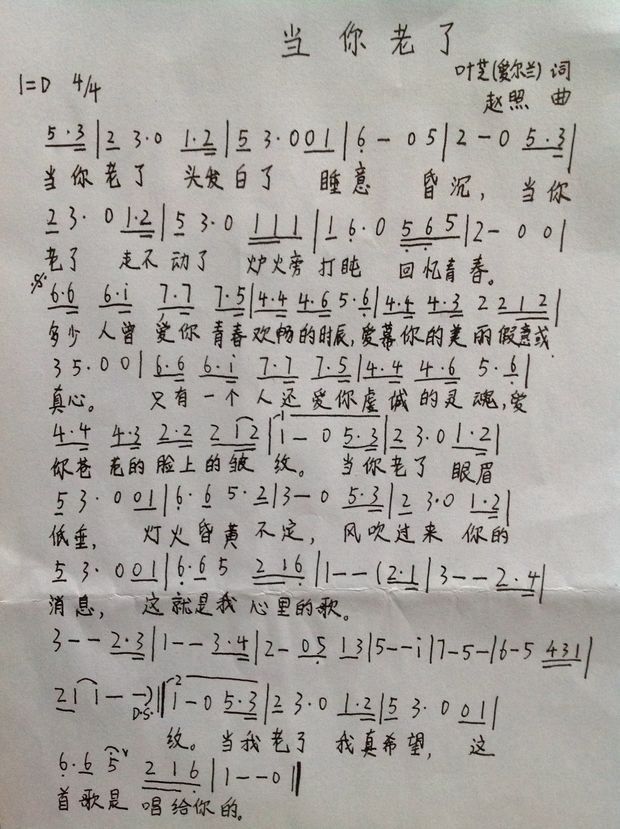 当你老了
叶芝(爱尔兰) 词
1=D 4/4
赵照 曲
5·3|2 3·0 1·2|5 3·001|6-05|2-0 5·3|
当你老了 头发白了 睡意 昏沉, 当你
2 3·0 1·2|5 3·0 111|1 6·0 565|2-00|
老了 走不动了 炉火旁打盹 回忆青春。
6·6 6·i 7·7 7·5|4·4 4·6 5·6|4·4 4·3 2212|
多少 人曾 爱你 青春欢畅的时辰,爱慕你的美丽假意或
35·00|6·6 6·i 7·7 7·5|4·4 4·6 5·6|
真心。 只有一个人还爱你虔诚的灵魂,爱
4·4 4·3 2·2 212|1-0 5·3|2 3·0 1·2|
你苍老的脸上的皱纹。 当你老了 眼眉
5 3·001|6·6 5·2|3-0 5·3|2 3·0 1·2|
低垂, 灯火昏黄不定, 风吹过来 你的
5 3·001|6·65 216|1--(2·1|3--2·4|
消息, 这就是我心里的歌。
3--2·3|1--3·4|2-05 13|5--i|7-5-|6-5 431|
21 1--)‖1-0 5·3|2 3·0 1·2|5 3·0 01|
D.S.
纹。当我老了 我真希望, 这
6·6 5 216|1--0‖
首歌是 唱给你的。